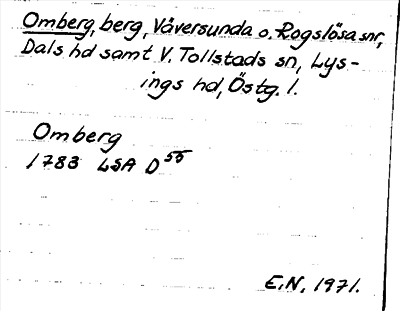 Omberg, berg, Väversunda o. Rogslösa snr,
Dals hd samt V. Tollstads sn, Lys-
ings hd, Östg. l.
Omberg
1783 LSA D55
E.N. 1971.